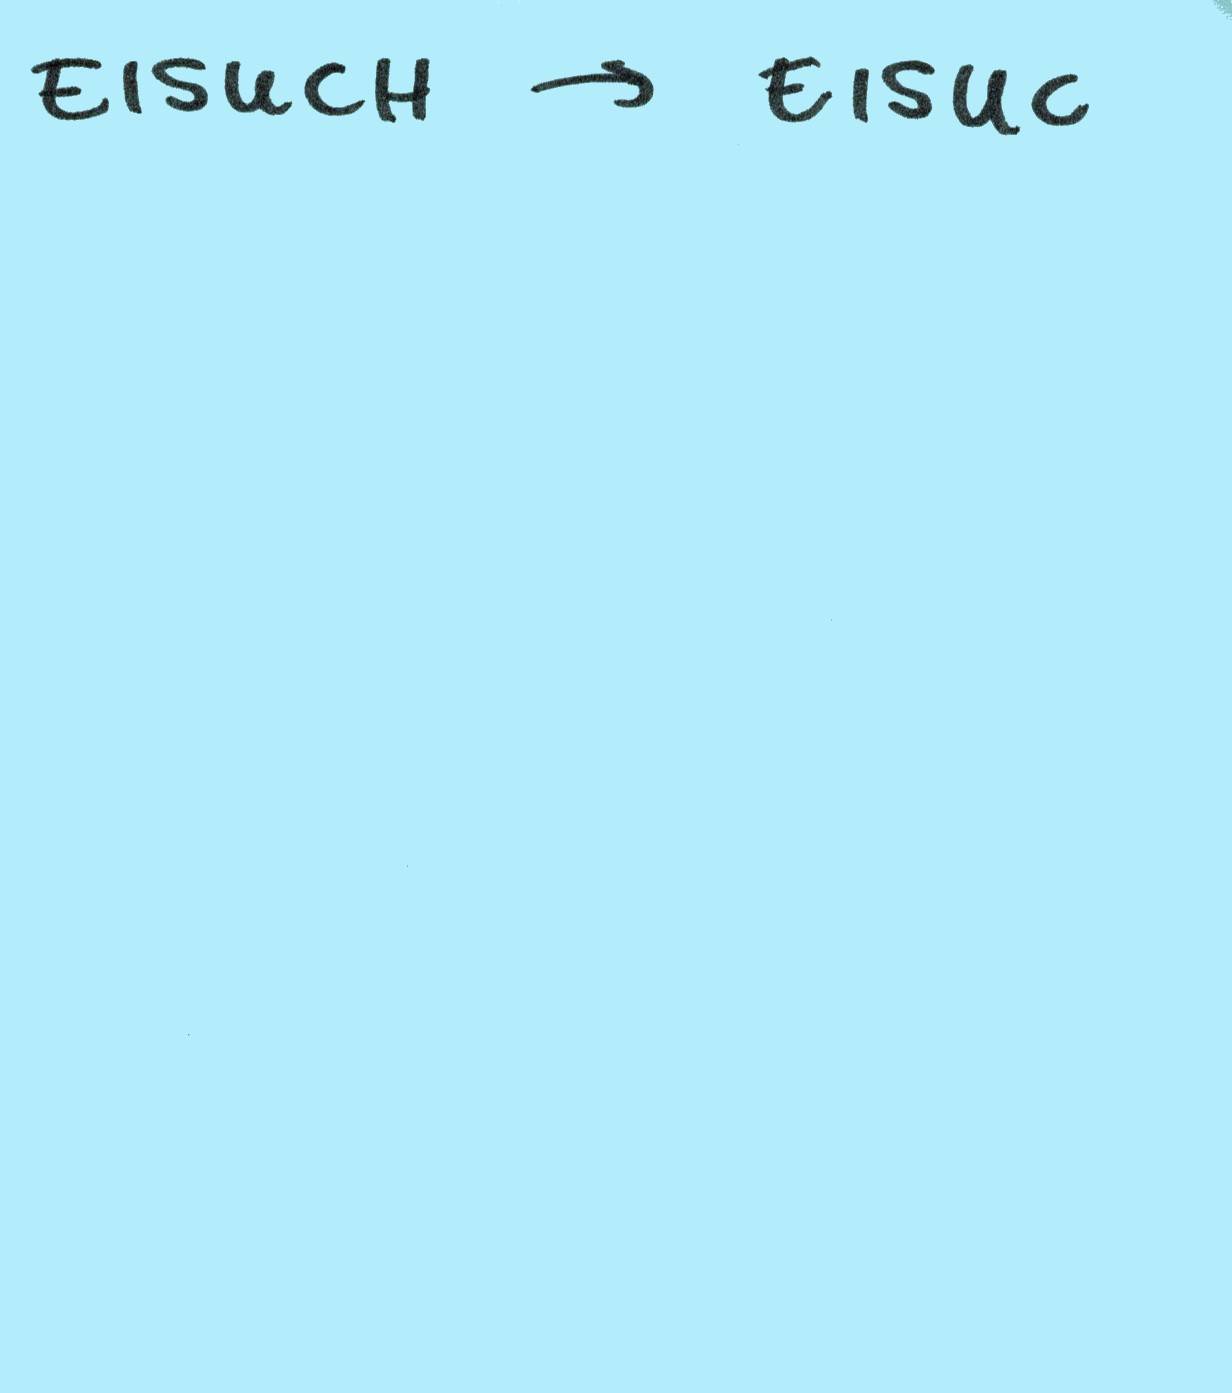 EISUCH → EISUC